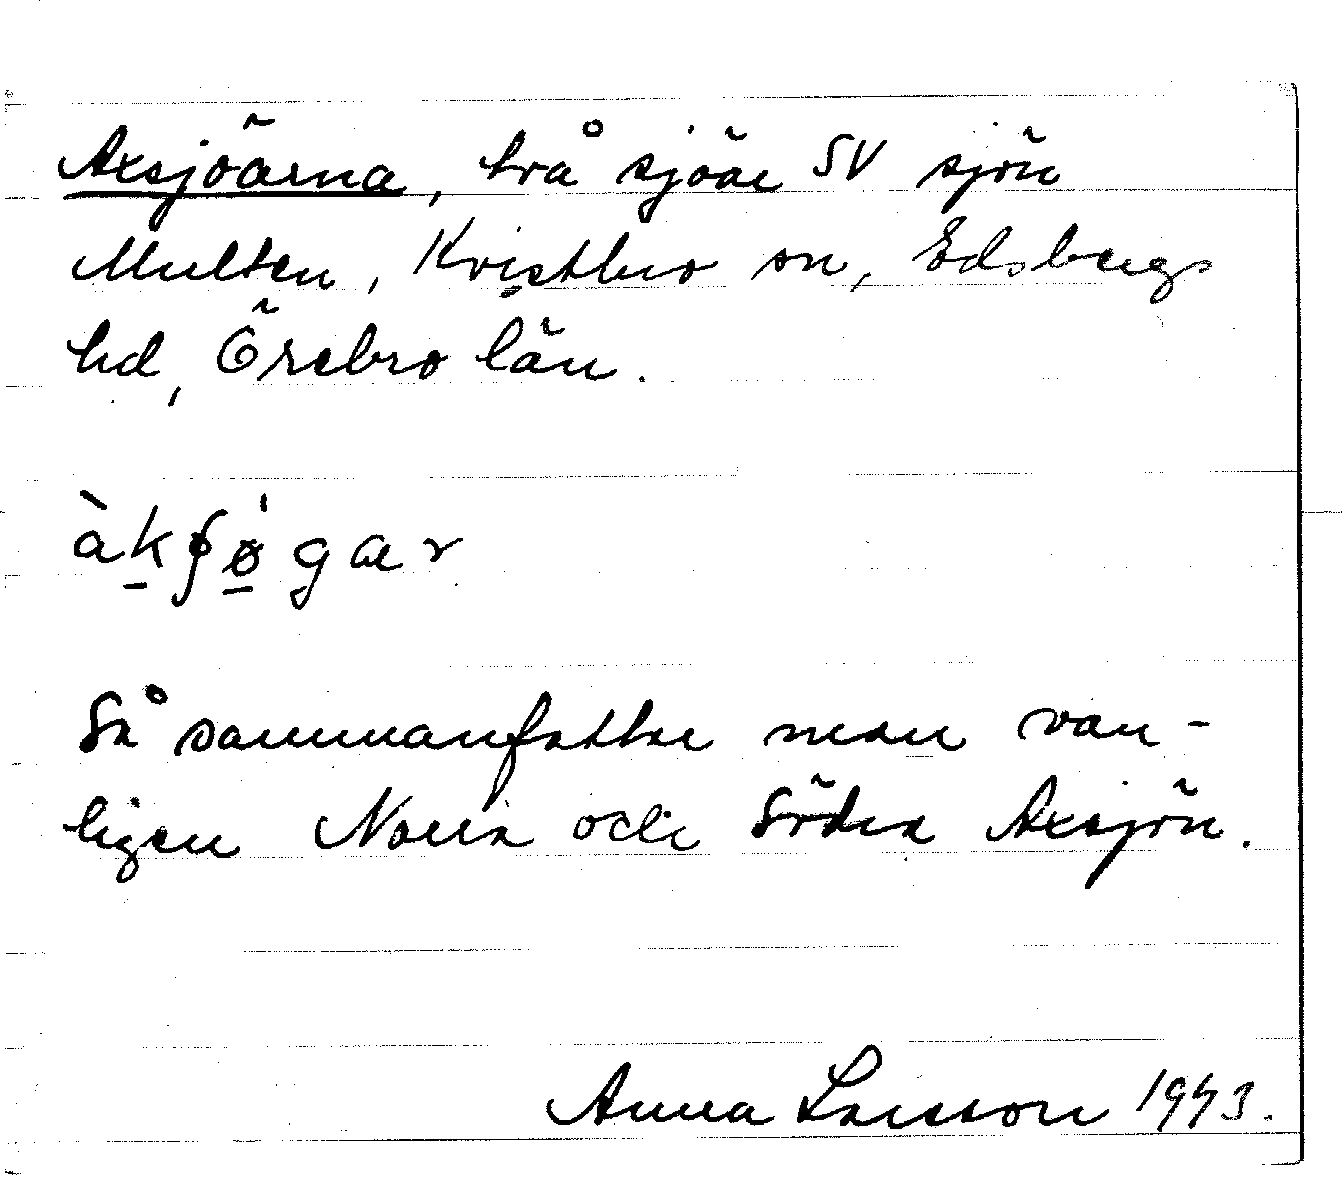 Axsjöarna, två sjöar SV sjön
Multen, Kvistbro sn, Edsbergs
hd, Örebro län.
àkʃø̀gar
Så sammanfattar man van-
ligen Norra och Södra Axsjön.
Anna Larsson 1943.